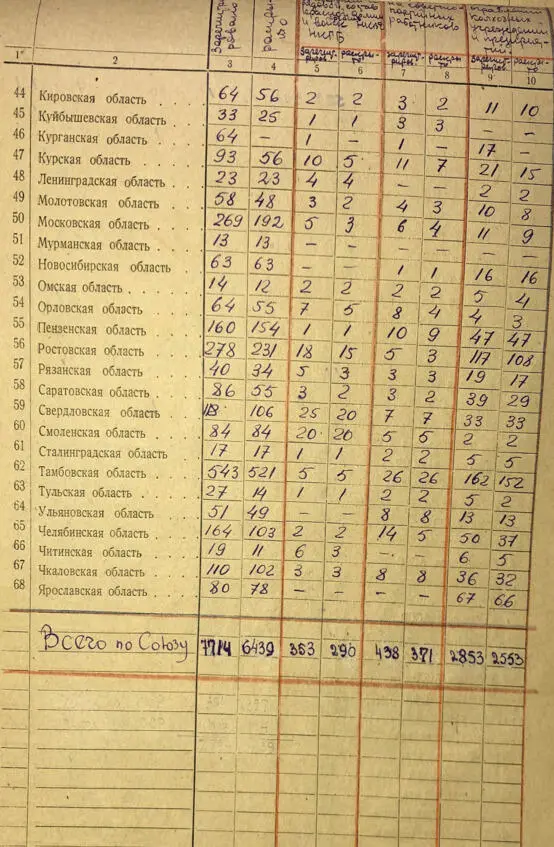 Зарегистрировано раскрыто
и войск
работников
колхозных
учреждений
и предприятий
1 2 3 4 5 6 7 8 9 10
44 Кировская область . . . . 64 56 2 2 3 2 11 10
45 Куйбышевская область 33 25 1 1 3 3 – –
46 Курганская область . . . 64 – 1 – 1 – 17 –
47 Курская область . . . . 93 56 10 5 11 7 21 15
48 Ленинградская область . . 23 23 4 4 – – 2 2
49 Молотовская область . . . 58 48 3 2 4 3 10 8
50 Московская область . . . 269 192 5 3 6 4 11 9
51 Мурманская область . . . 13 13 – – – – – –
52 Новосибирская область 63 63 – – 1 1 16 16
53 Омская область . . . . 14 12 2 2 2 2 5 4
54 Орловская область . . . . 64 55 7 5 8 4 4 3
55 Пензенская область . . . 160 154 1 1 10 9 47 47
56 Ростовская область . . . 278 231 18 15 5 3 117 108
57 Рязанская область . . . . 40 34 5 3 3 3 19 17
58 Саратовская область . . . 86 55 3 2 3 2 39 29
59 Свердловская область . . . 106 25 20 7 7 33 33
60 Смоленская область . . . 84 84 20 20 5 5 2 2
61 Сталинградская область . . 17 17 1 1 2 2 5 5
62 Тамбовская область . . . 543 521 5 5 26 26 162 152
63 Тульская область . . . . 27 14 1 1 2 2 5 2
64 Ульяновская область 51 49 – – 8 8 13 13
65 Челябинская область . . . 164 103 2 2 14 5 50 37
66 Читинская область . . . . 19 11 6 3 – – 6 5
67 Чкаловская область . . . 110 102 3 3 8 8 36 32
68 Ярославская область . . . 80 78 – – – – 67 66
Всего по Союзу 7714 6439 353 290 438 371 2853 2553